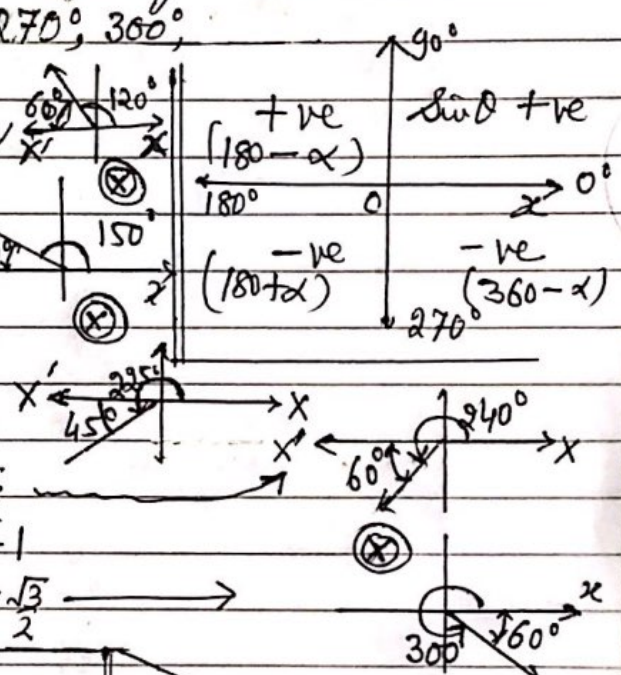 270°, 300°,
90°
60° 120°
+ve sinθ +ve
X' X
(180-α)
180° 0 x 0°
150°
x
-ve -ve
(180+α) (360-α)
270°
225°
X' X
45°
240°
X' X
60°
1
√3/2
x
300° 60°